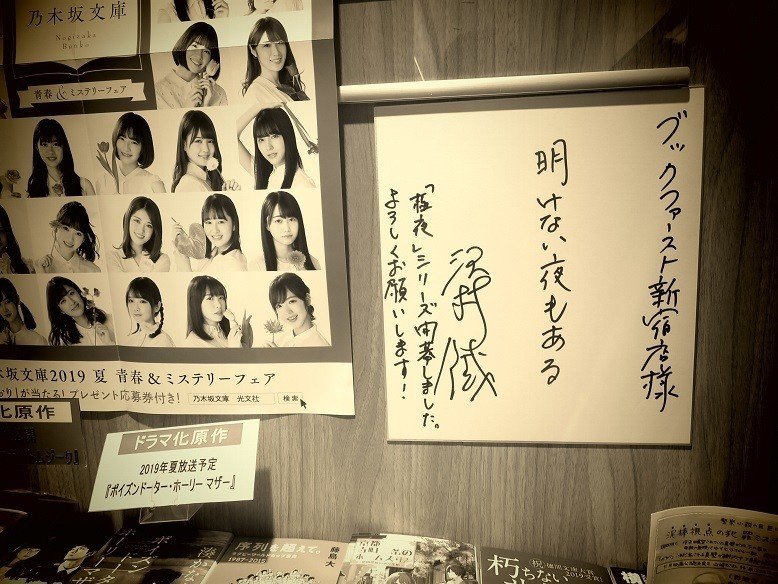 乃木坂文庫
Nogizaka
Bunko
青春&ミステリーフェア
木坂文庫2019 夏 青春&ミステリーフェア
が当たる!プレゼント応募券付き!
乃木坂文庫 光文社
検索
化原作
ドラマ化原作
2019年夏放送予定
『ポイズンドーター・ホーリーマザー』
ブックファースト新宿店様
明けない夜もある
「極夜」シリーズ開幕しました。
よろしくお願いします!
序列を超えて。
1987-2019
藤島 大
朽ちない
泥棒視点の犯